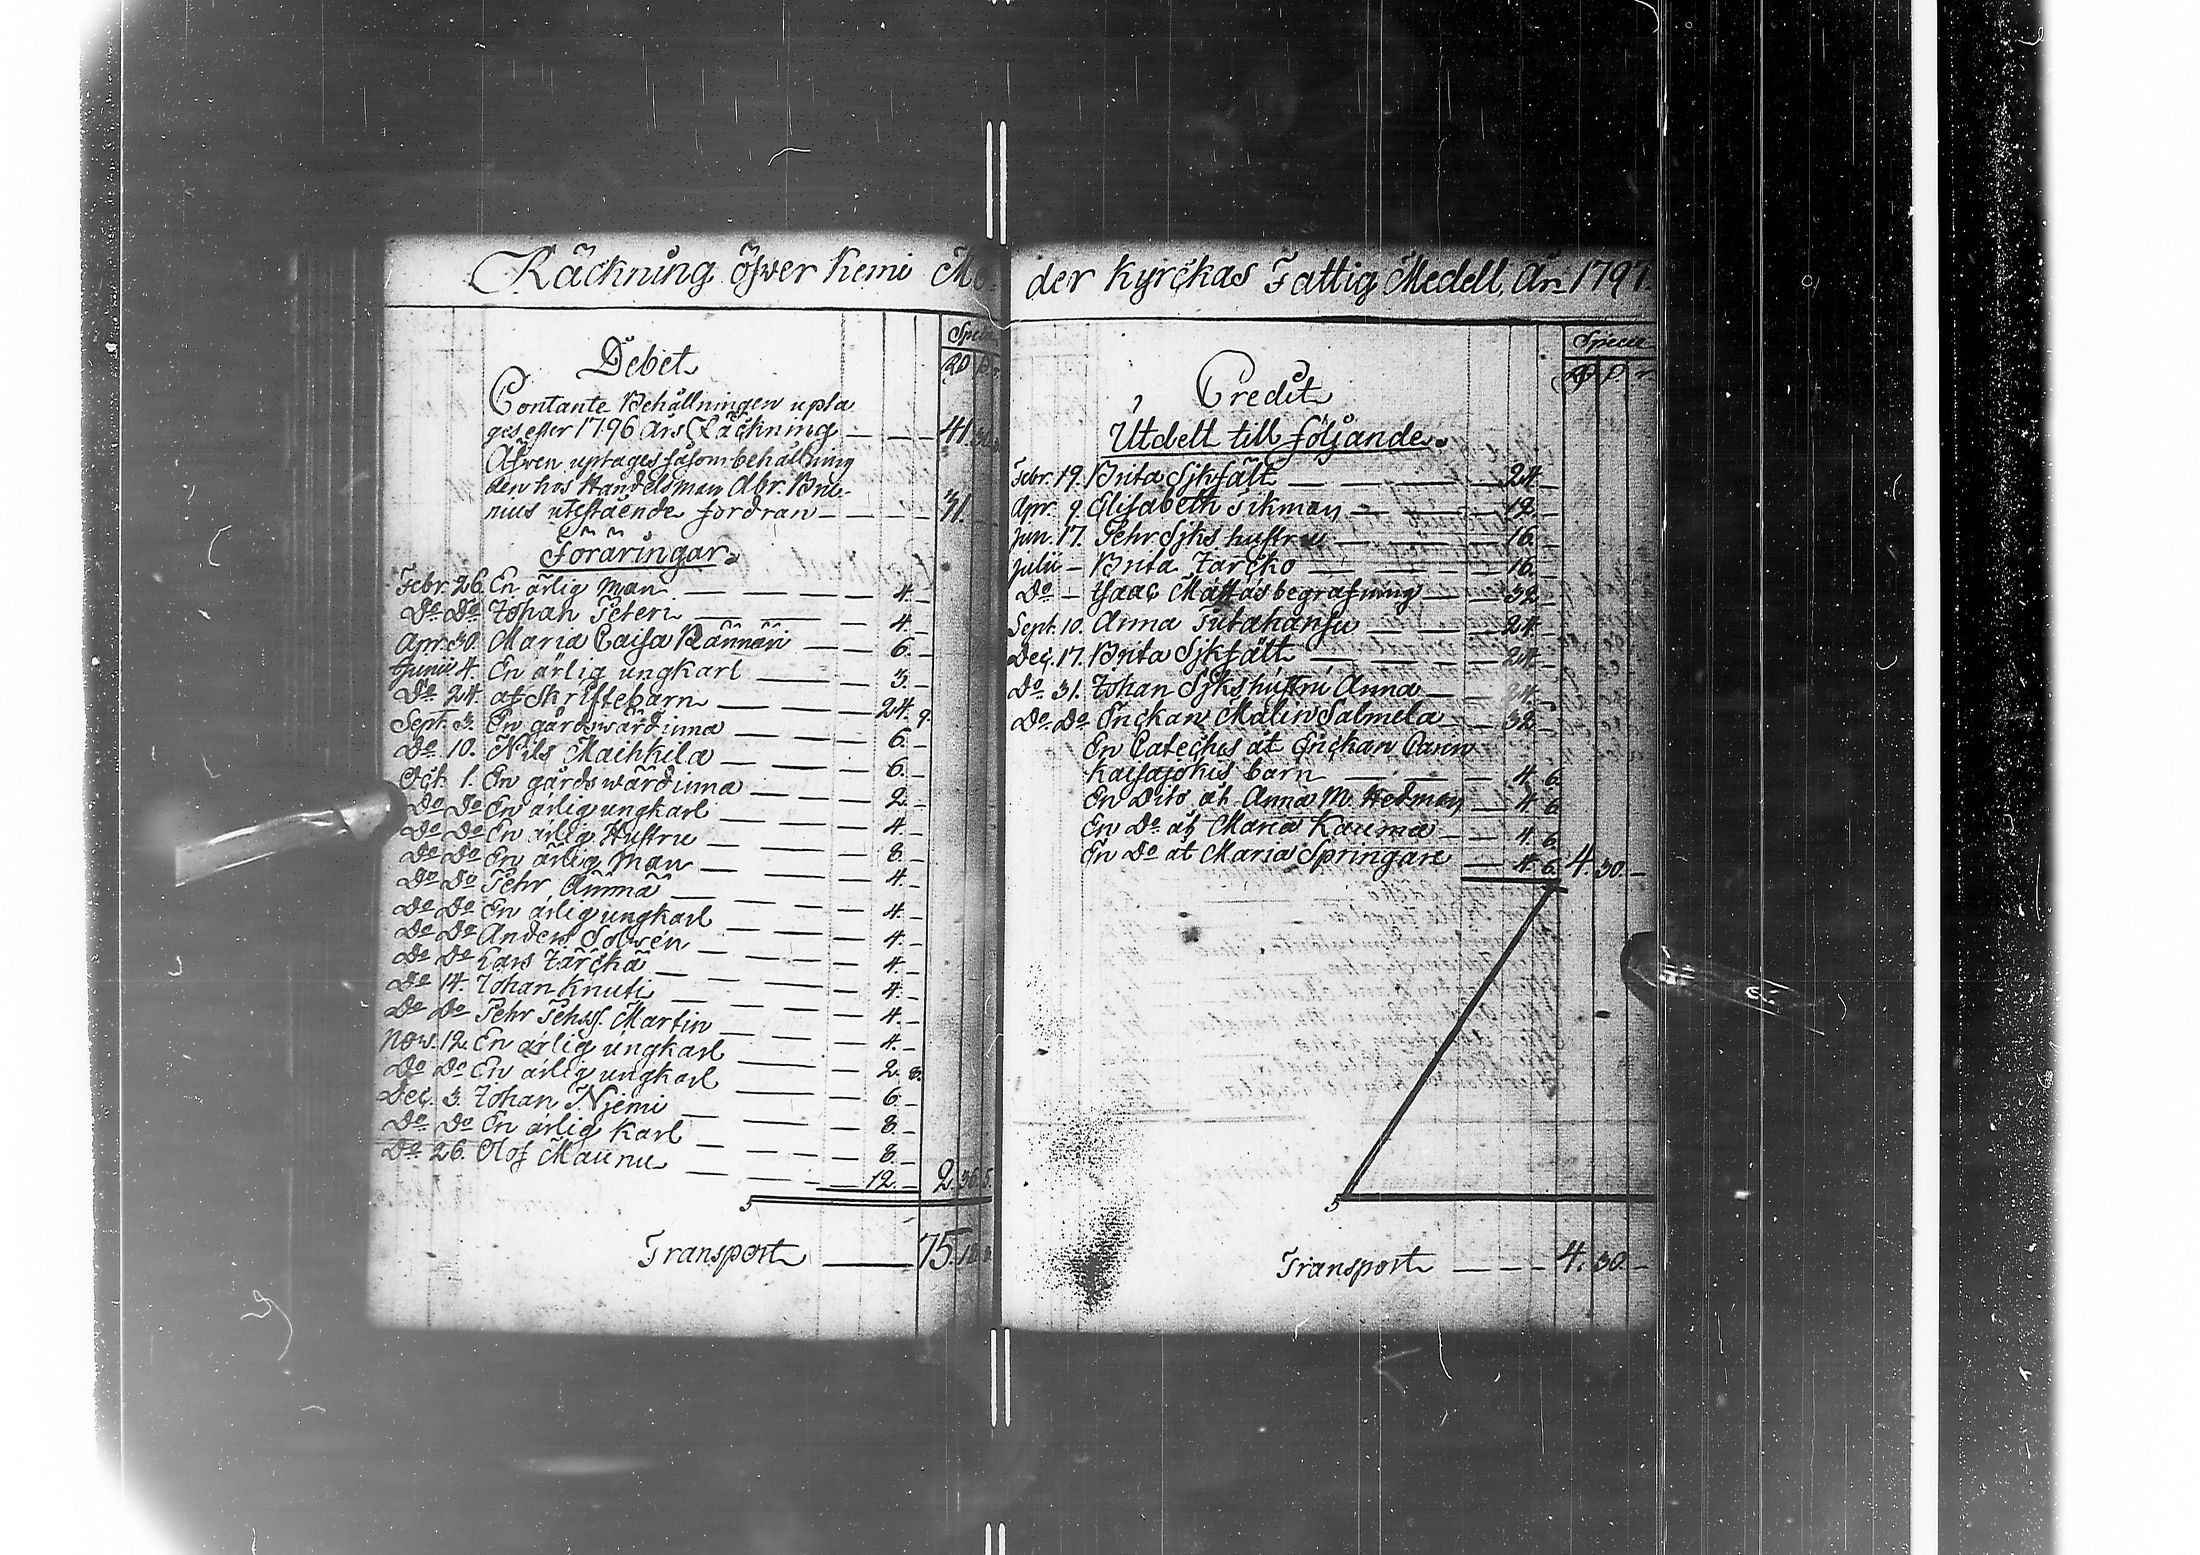 Räckning öfver Kemi Mo-
Debet
Specie
RD
Contante Behållningen upta
ges efter 1796 års Räckning — — — 41.
Äfven uptages såsom behållning
den hos Handelsman Abr.
nius utestående fordran — — — — 31.
Föräringar
Febr. 26. En ärlig Man — — — 4. —
Do Do Johan Peteri — — — 4. —
Apr. 30. Maria Caisa Rännäri — — 6. —
Junii 4. En ärlig ungkarl — — 3. —
Do 24. af Skriftebarn — — — 24. 9.
Sept. 3. En gårdswärdinna — — — 6. —
Do 10. Nils Maihkila — — — 6. —
Oct. 1. En gårdswärdinna — — — 2. —
Do Do En ärlig ungkarl — — — 4. —
Do Do En ärlig Hustru — — — 8. —
Do Do En ärlig Man — — — 4. —
Do Do Pehr Ämmä — — — 4. —
Do Do En ärlig ungkarl — — — 4. —
Do Do Anders Solwén — — — 4. —
Do Do Lars Järckä — — — 4. —
Do 14. Johan Knuti — — — 4. —
Do Do Pehr Pehrss. Martin — — — 4. —
Nov. 12. En ärlig ungkarl — — — 2. 8.
Do Do En ärlig ungkarl — — — 6. —
Dec. 3. Johan Njemi — — — 8. —
Do Do En ärlig Karl — — — 8. —
Do 26. Olof Maunu — — — 12. — 2. 36. 5.
Transport — 75.
der Kyrckas Fattig Medell, År 1797.
Specie
Credit
Utdelt till följande.
Febr. 19. Brita Sjkfält — — — 24. —
Apr. 9. Elisabeth Sikman — — 12. —
Jun. 17. Pehr Sjks hustru — — — 16. —
Julii — Brita Jarcko — — — 16. —
Do — Isaac Mattas begrafning — — 32. —
Sept. 10. Anna — — — 24. —
Dec. 17. Brita Sjkfält — — — 24. —
Do 31. Johan Sjks hustru Anna — 24. —
Do Do Enckan Malin Salmela — 32. —
En Cateches åt Enckan Carin
barn — — — 4. 6.
En Dito åt Anna M. Hedman — 4. 6.
En Do åt Maria Kauma — — 4. 6.
En Do åt Maria Springare — 4. 6. 4. 30. —
Transport — — — 4. 30. —